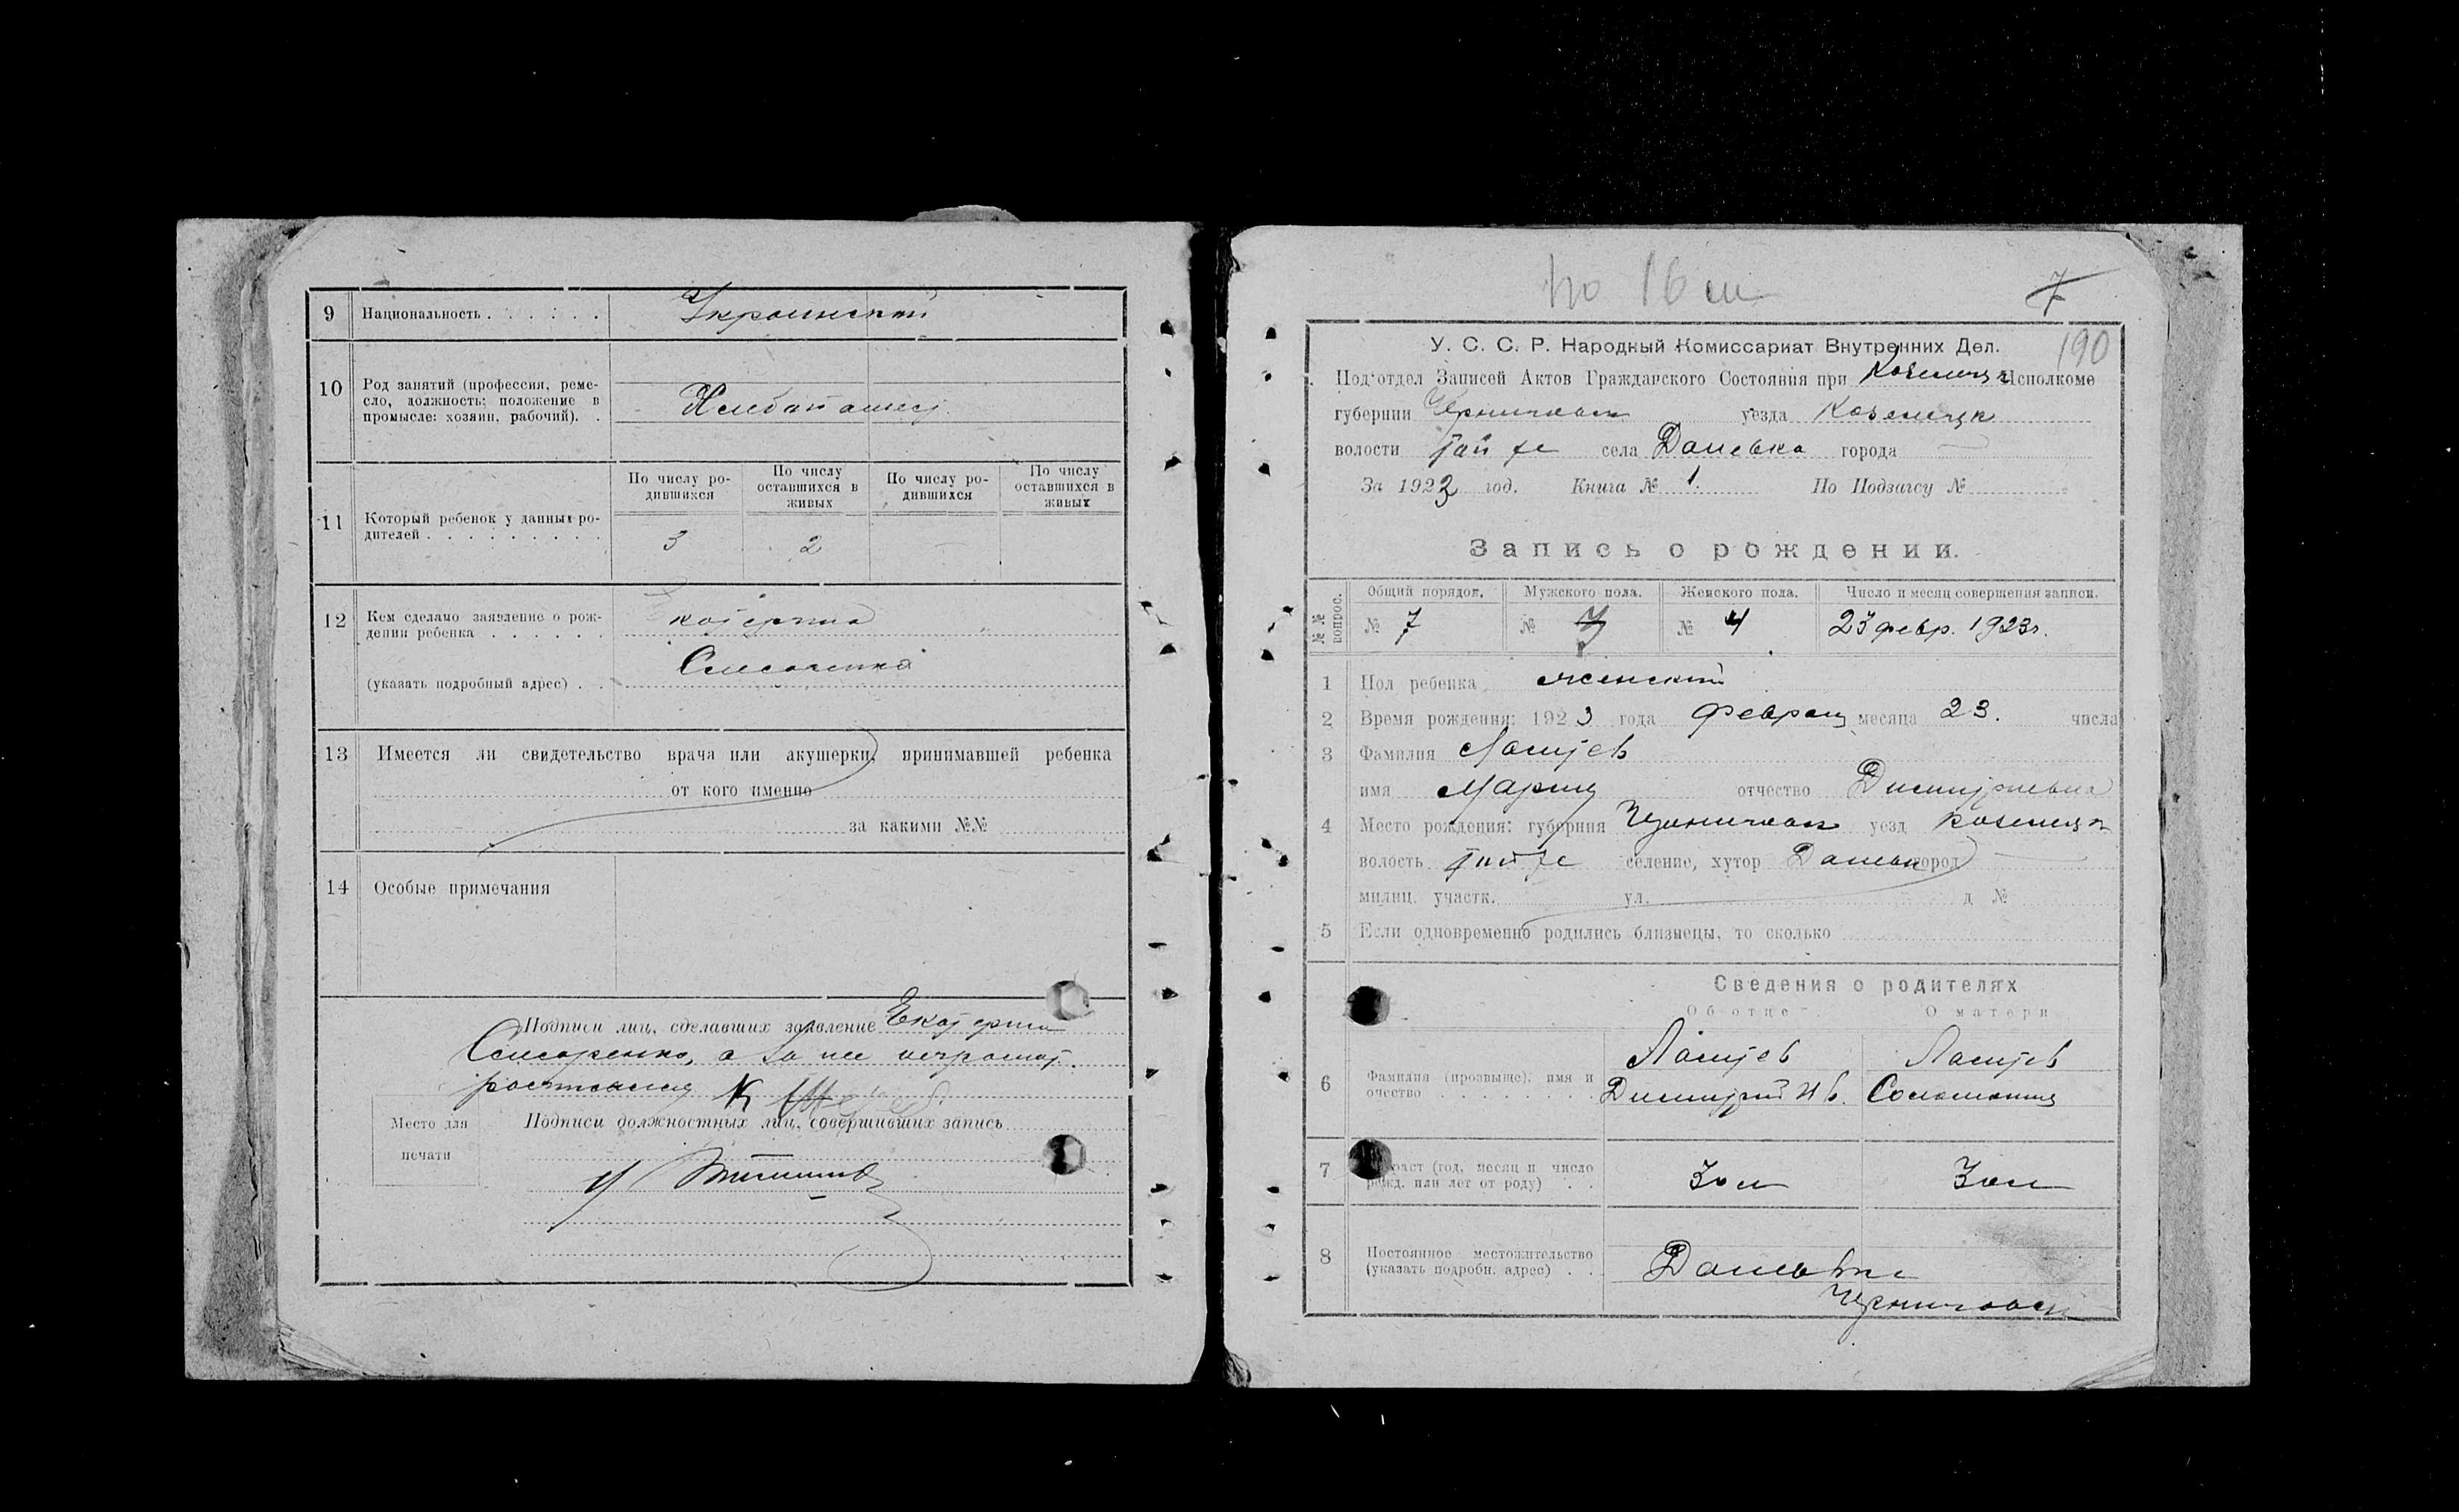 9 Национальность . . . . . . Украинский
10 Род занятий (профессия, реме-
сло, должность; положение в
промысле: хозяин, рабочий). .
Хлебопашес.
По числу ро-
дившихся
По числу
оставшихся в
живых
По числу ро-
дившихся
По числу
оставшихся в
живых
11 Который ребенок у данных ро-
дителей . . . . . . . . . 3 2 —
12 Кем сделано заявление о рож-
дении ребенка . . . . . . Екатерина
(указать подробный адрес) . .
13 Имеется ли свидетельство врача или акушерки, принимавшей ребенка
от кого именно
за какими №№
14 Особые примечания
Подписи лиц, сделавших заявление Екатерина
а за нее неграмот.
К
Место для
печати
Подписи должностных лиц, совершивших запись
по 16 7
190
У. С. С. Р. Народный Комиссариат Внутренних Дел.
Под'отдел Записей Актов Гражданского Состояния при Козелецк Исполкоме
губернии Черниговск уезда Козелецк
волости той же села Даневка города —
За 1923 год. Книга № 1. По Подзагсу №
Запись о рождении.
№ № вопрос.
Общий порядок. Мужского пола. Женского пола. Число и месяц совершения записи.
№ 7 № 7 № 4 23 февр. 1923г.
1 Пол ребенка женский
2 Время рождения: 1923 года Февраля месяца 23. числа
3 Фамилия
имя Мария отчество Димитриевна
4 Место рождения: губерния Черниговск уезд Козелецк
волость той же селение, хутор Даневк город —
милиц. участк. ул. д №
5 Если одновременно родились близнецы, то сколько
Сведения о родителях
Об отце О матери
6 Фамилия (прозвыще), имя и
очество . . . . . . . .
Димитрий Ив. Соломония
7 Возраст (год, месяц и число
рожд. или лет от роду) . . 30 л 30 л
8 Постоянное местожительство
(указать подробн. адрес) . . Даневка
Черниговск